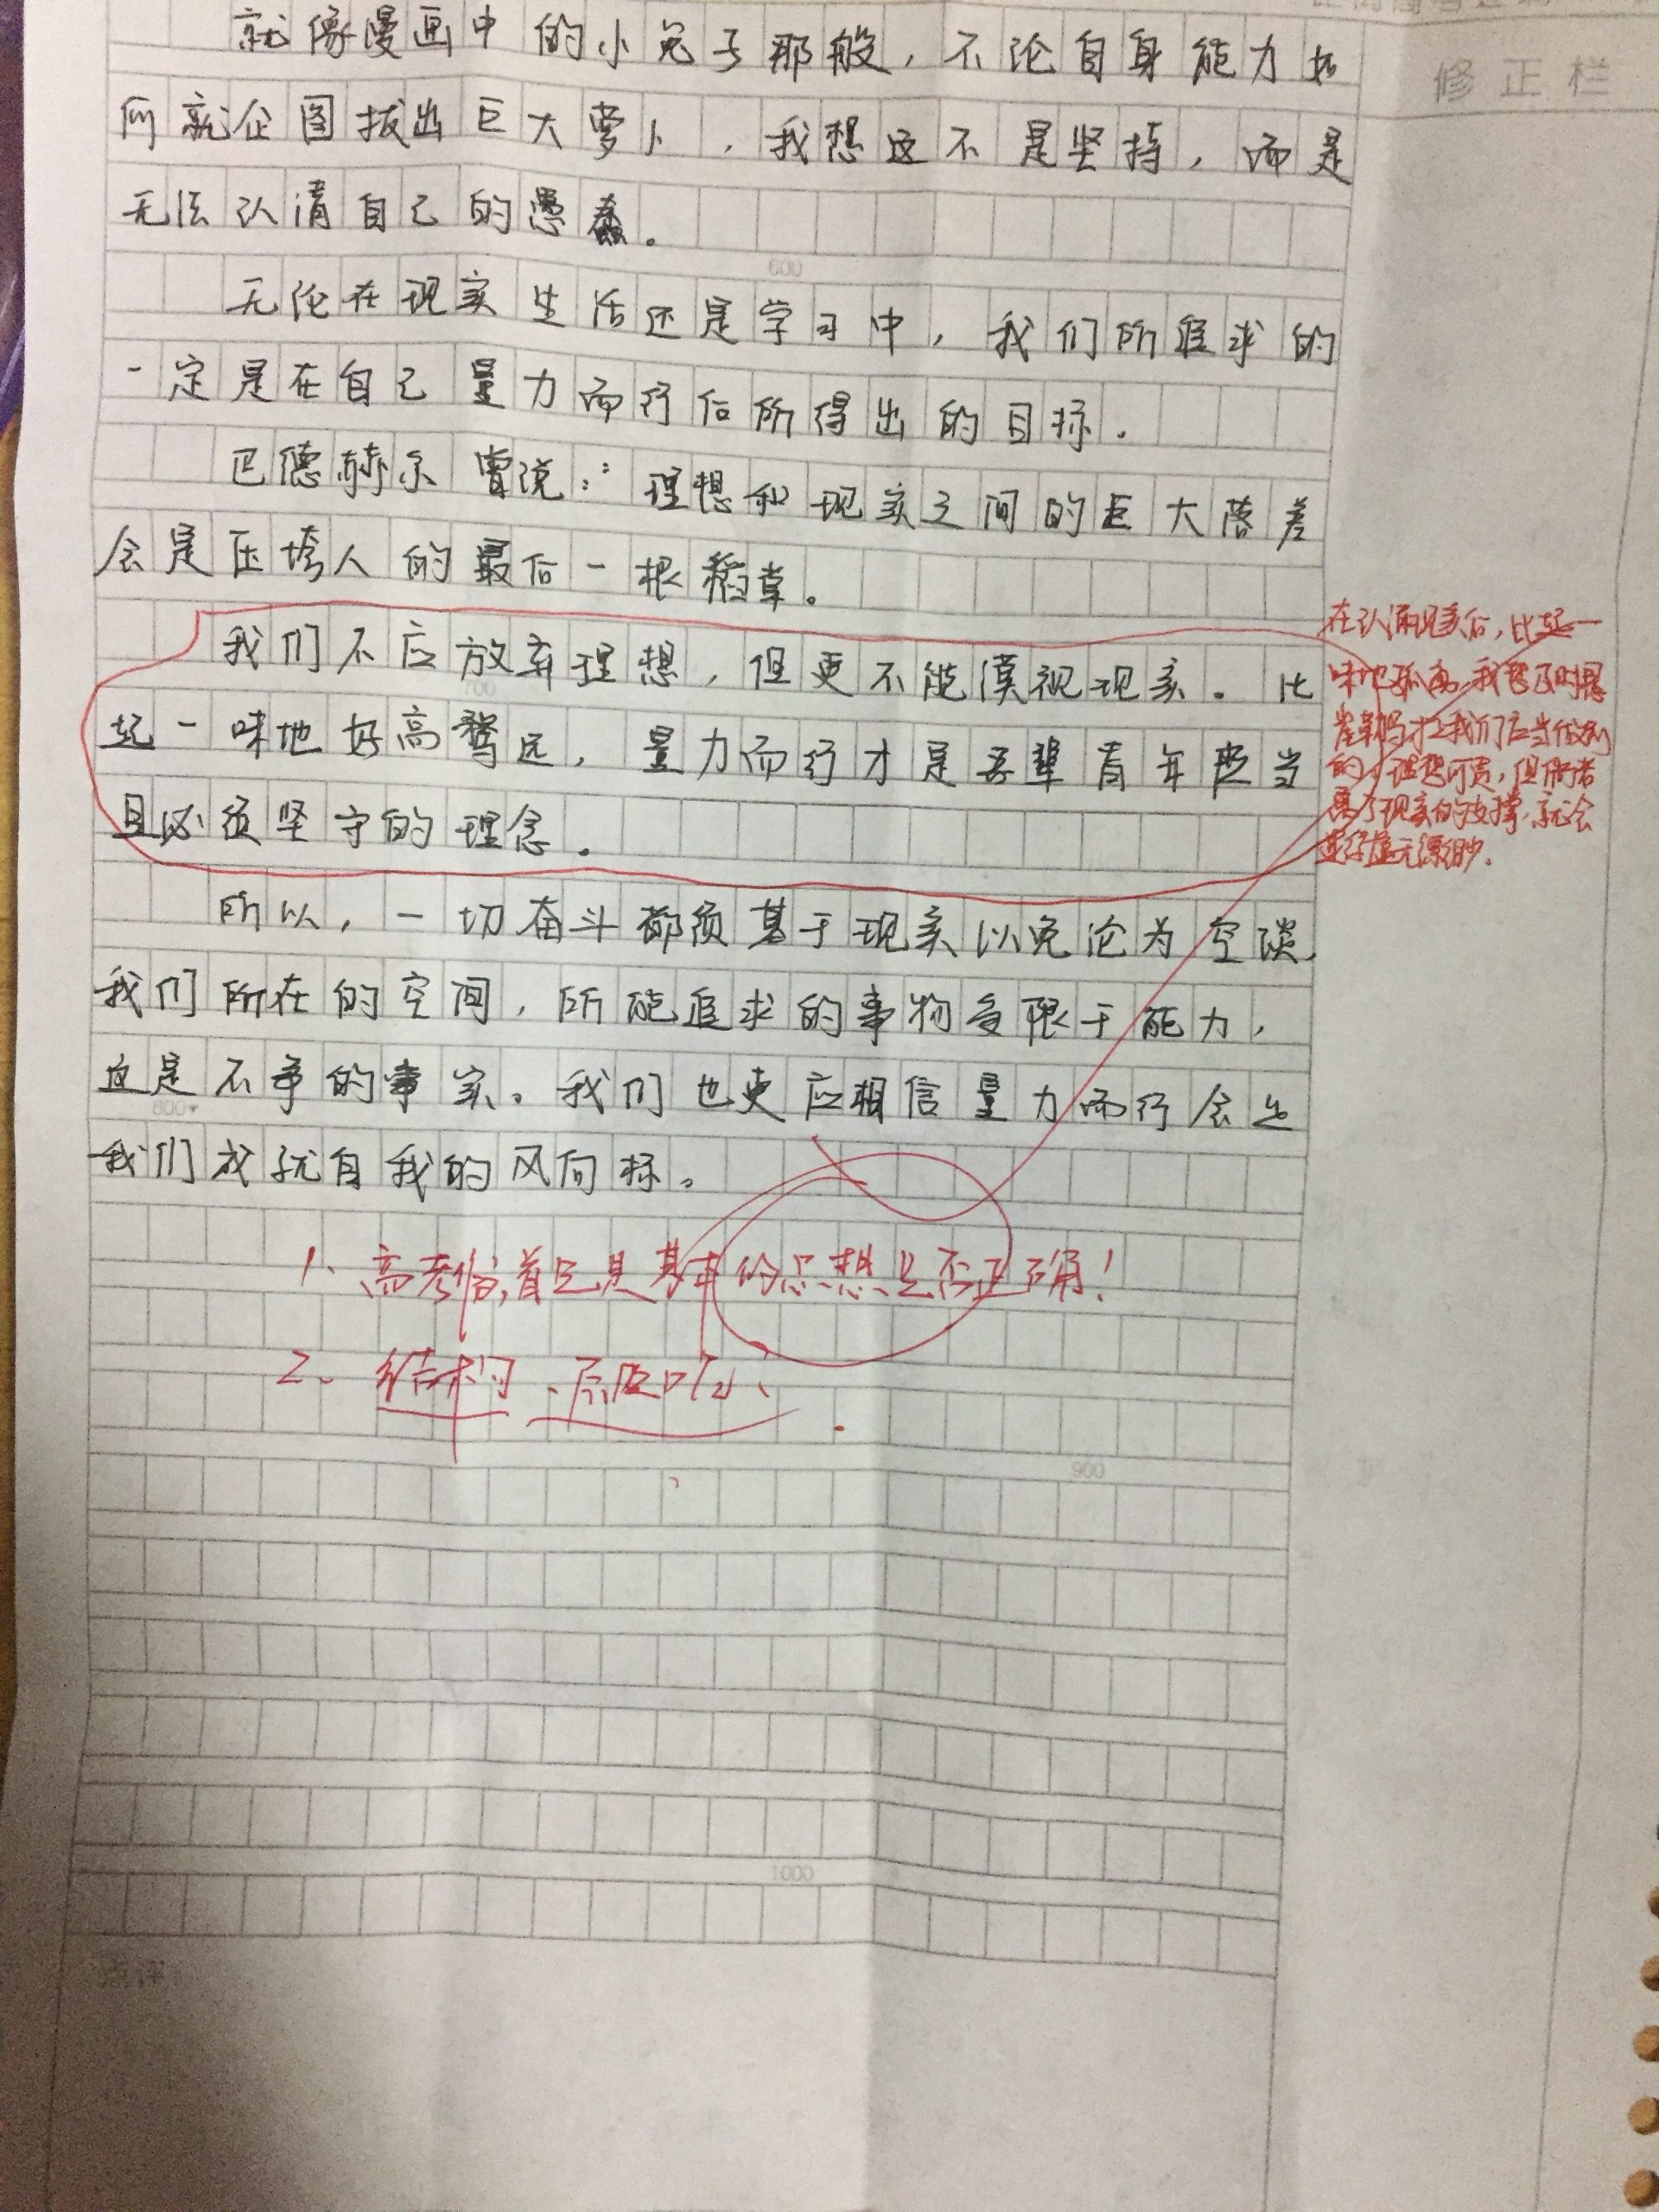 修正栏
就像漫画中的小兔子那般，不论自身能力如
何就企图拔出巨大萝卜，我想这不是坚持，而是
无法认清自己的愚蠢。
600
无论在现实生活还是学习中，我们所追求的
一定是在自己量力而行后所得出的目标。
巴德赫尔曾说：“理想和现实之间的巨大落差
会是压垮人的最后一根稻草。
我们不应放弃理想，但更不能漠视现实。比
700
起一味地好高骛远，量力而行才是吾辈青年应当
且必须坚守的理念。
所以，一切奋斗都须基于现实以免沦为空谈，
我们所在的空间，所能追求的事物受限于能力，
这是不争的事实。我们也更应相信量力而行会是
800
我们成就自我的风向标。
在认清现实后，比起一
味地孤勇，我想及时悬
崖勒马才是我们应当做到
的，理想可贵，但倘若
离了现实的支撑，就会
变得虚无漂缈.
1、高考作，首先是基本的思想是否正确！
2、结构、
900
1000